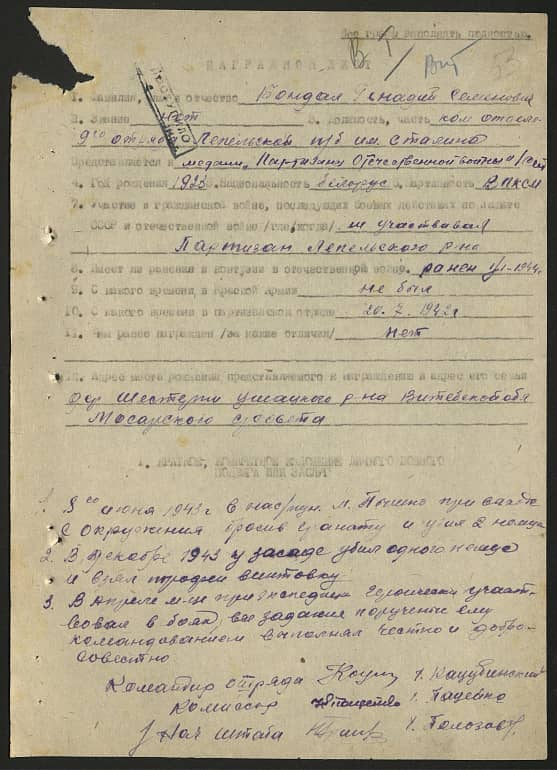 Все графы заполнять полностью.
ВГ / Вит 53
НАГРАДНОЙ ЛИСТ
ПОСТУПИЛО
1. Фамилия, отчество Бондал Генадий Семенович
2. Звание нет 3. Должность, часть ком отделе
отряда Лепельской п/б им. Сталина
Представляется к медали "Партизану Отечественной войны"
4. Год рождения 192 5. Национальность белорус 6. Партийность ВЛКСМ
7. Участие в гражданской войне, последующих боевых действиях по защите
СССР и отечественной войне /где, когда/ не участвовал
Партизан Лепельского р-на
8. Имеет ли ранения и контузии в отечественной войне. ранен 1944
9. С какого времени в Красной Армии не был
10. С какого времени в партизанском отряде 20.7.1942г
11. Чем ранее награжден /за какие отличия/ нет
12. Адрес места рождения представляемого к награждению и адрес его семьи
дер Ушацкого р-на Витебской обл
Мосарского с/совета
1. КРАТКОЕ, КОНКРЕТНОЕ ИЗЛОЖЕНИЕ ЛИЧНОГО БОЕВОГО
ПОДВИГА ИЛИ ЗАСЛУГ
1. июня 1943г в нас/пун. м. при выходе
с окружения бросив гранату и убил 2 немца
2. В декабре 1943 у засаде убил одного немца
и взял трофеи винтовку
3. В Апреле м-це при экспедиции героически участ-
вовал в боях, все задания поручение ему
командованием выполнял честно и добро-
совестно
Командир отряда Кацубинский
Комиссар Пацевко
Нач штаба Полозов